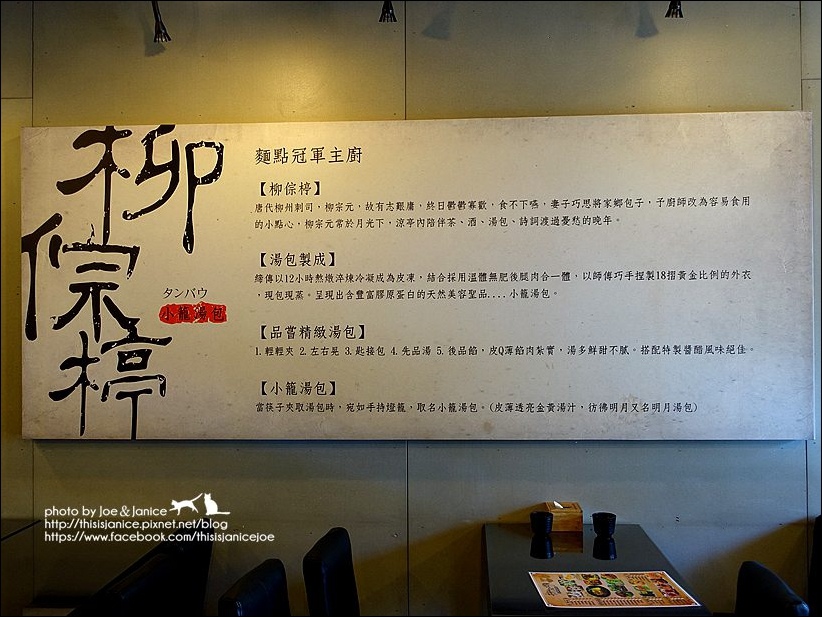 柳倧楟
タンバウ
小籠湯包
麵點冠軍主廚
【柳倧楟】
唐代柳州刺司，柳宗元，故有志艱庸，終日鬱鬱寡歡，食不下嚥，妻子巧思將家鄉包子，予廚師改為容易食用
的小點心，柳宗元常於月光下，涼亭內陪伴茶、酒、湯包、詩詞渡過憂愁的晚年。
【湯包製成】
締傳以12小時熬燉淬煉冷凝成為皮凍，結合採用溫體無肥後腿肉合一體，以師傅巧手捏製18摺黃金比例的外衣
，現包現蒸。呈現出含豐富膠原蛋白的天然美容聖品....小籠湯包。
【品嘗精緻湯包】
1.輕輕夾 2.左右晃 3.匙接包 4.先品湯 5.後品餡，皮Q薄餡肉紮實，湯多鮮甜不膩。搭配特製醬醋風味絕佳。
【小籠湯包】
當筷子夾取湯包時，宛如手持燈籠，取名小籠湯包。(皮薄透亮金黃湯汁，彷彿明月又名明月湯包)
photo by Joe & Janice
http://thisisjanice.pixnet.net/blog
https://www.facebook.com/thisisjanicejoe